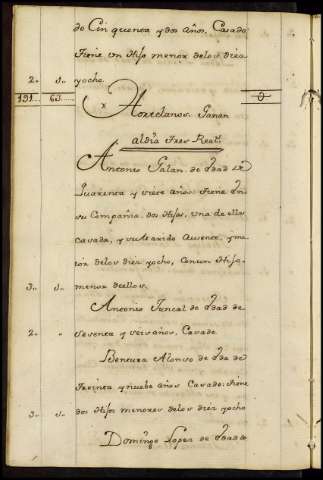 do Cinquenta y dos años, Casado
tiene un Hijo menor delos diez
2.. s.. yocho
191... 63... Ortelanos Ganan 0
aldia tres Reas.
Antonio Galan de Edad de
Quarenta y siete años tiene en
su Compañia dos Hijos, una de ellas
Casada, y su Marido Ausente, y me
nor delos diez yocho, con un Hijo
3.. s.. menor de ellos
Antonio Juncal de edad de
2.. sesenta y seis años, Casado
Bentura Alonso de Eda de
treinta y nuebe años Casado tiene
3.. s.. dos Hijos menores delos diez yocho
Domingo Lopez de Edad de